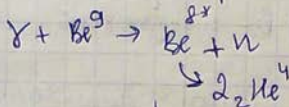 γ + Be⁹ → Be⁸* + n
↳ 2 ₂He⁴